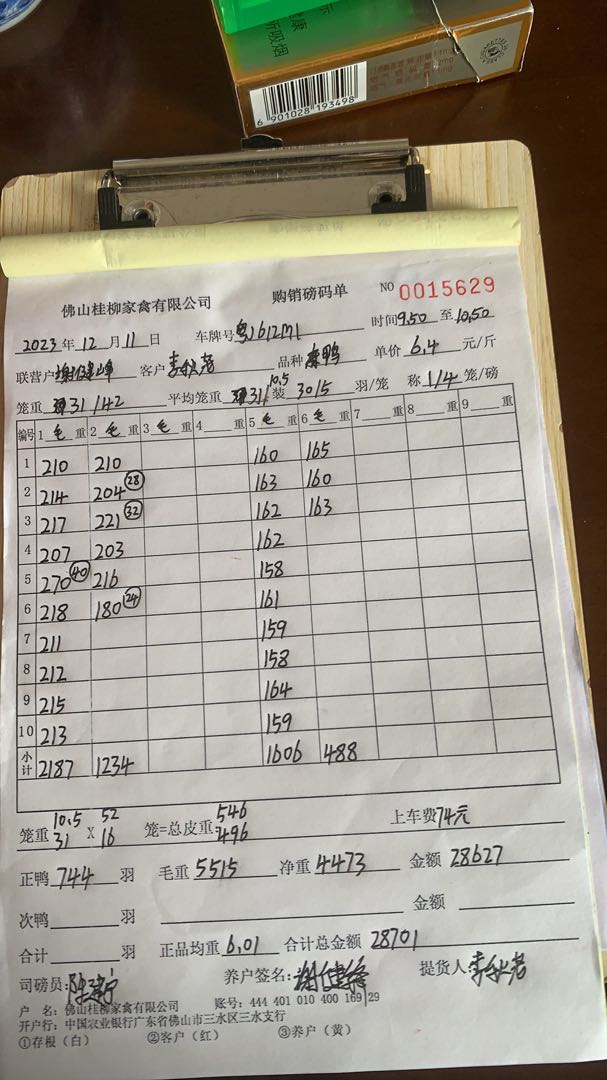 新吸烟
6 901028 193498
佛山桂柳家禽有限公司 购销磅码单 NO 0015629
2023年12月11日 车牌号 粤J612M1 时间9,50至10,50
联营户 谢健峰 客户 品种 鸭 单价 6,4 元/斤
笼重 31/42 平均笼重 31/10.5 装 30/5 羽/笼 称 1/4 笼/磅
编号 1 毛 重 2 毛 重 3 毛 重 4 重 5 毛 重 6 毛 重 7 重 8 重 9 重
1 210 210 160 165
2 214 204 28 163 160
3 217 221 32 162 163
4 207 203 162
5 270 40 216 158
6 218 180 24 161
7 211 159
8 212 158
9 215 164
10 213 159
小计 2187 1234 1606 488
10.5 52 546
笼重 31 X 16 笼=总皮重: 496 上车费 74元
正鸭 744 羽 毛重 5515 净重 4473 金额 28627
次鸭 羽 金额
合计 羽 正品均重 6,01 合计总金额 28701
司磅员: 养户签名: 谢健锋 提货人
户 名: 佛山桂柳家禽有限公司 账号: 444 401 010 400 169 29
开户行: 中国农业银行广东省佛山市三水区三水支行
①存根(白) ②客户(红) ③养户(黄)